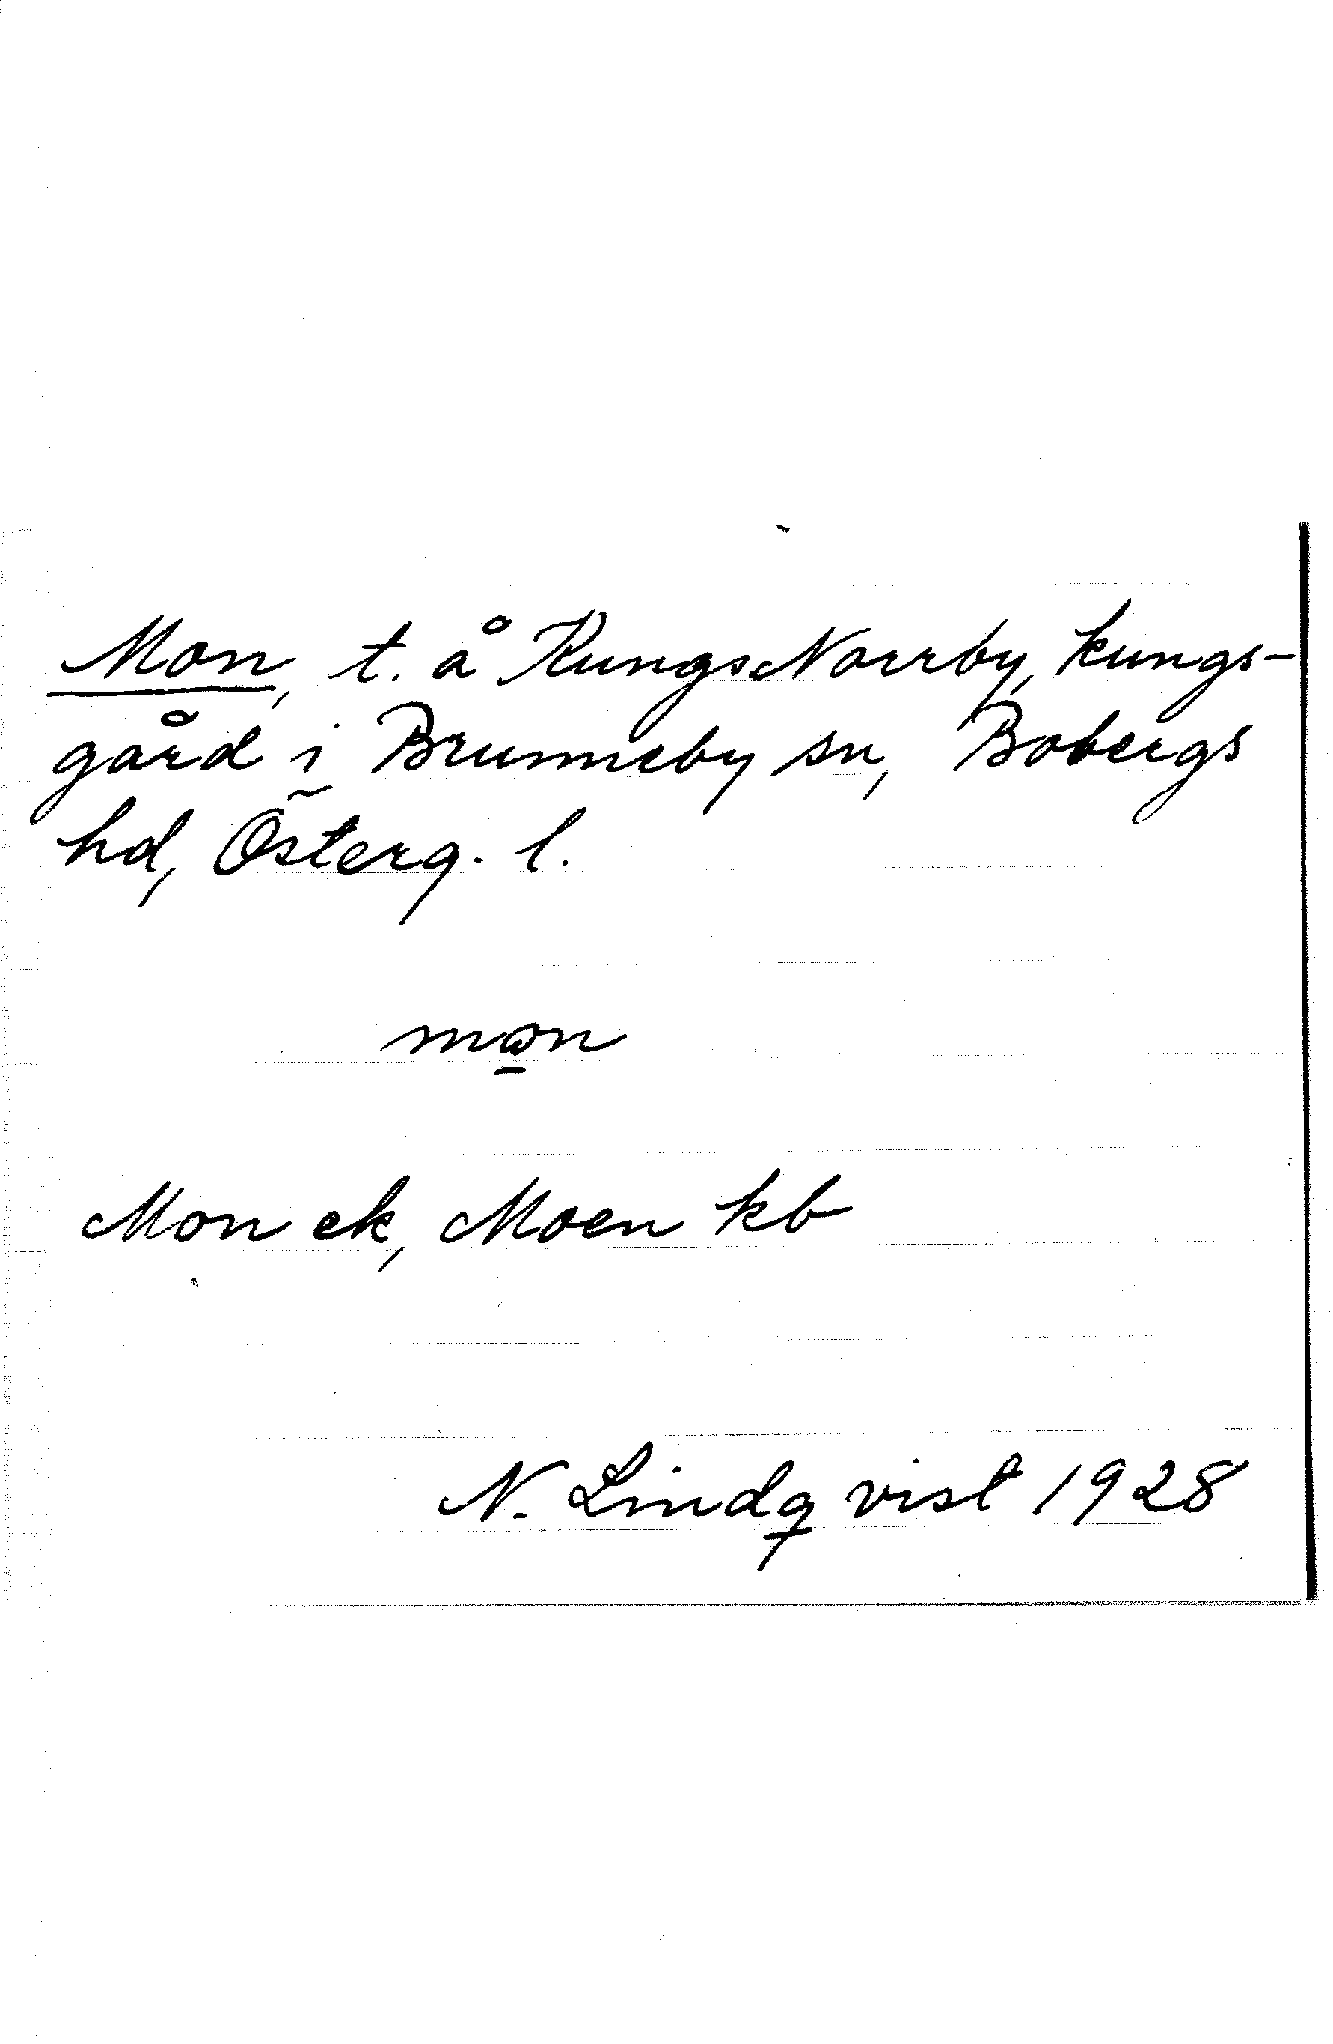 Mon, t. å Kungs Norrby, kungs-
gård i Brunneby sn, Bobergs
hd, Österg. l.
mωn
Mon ek, Moen kb
N. Lindqvist 1928